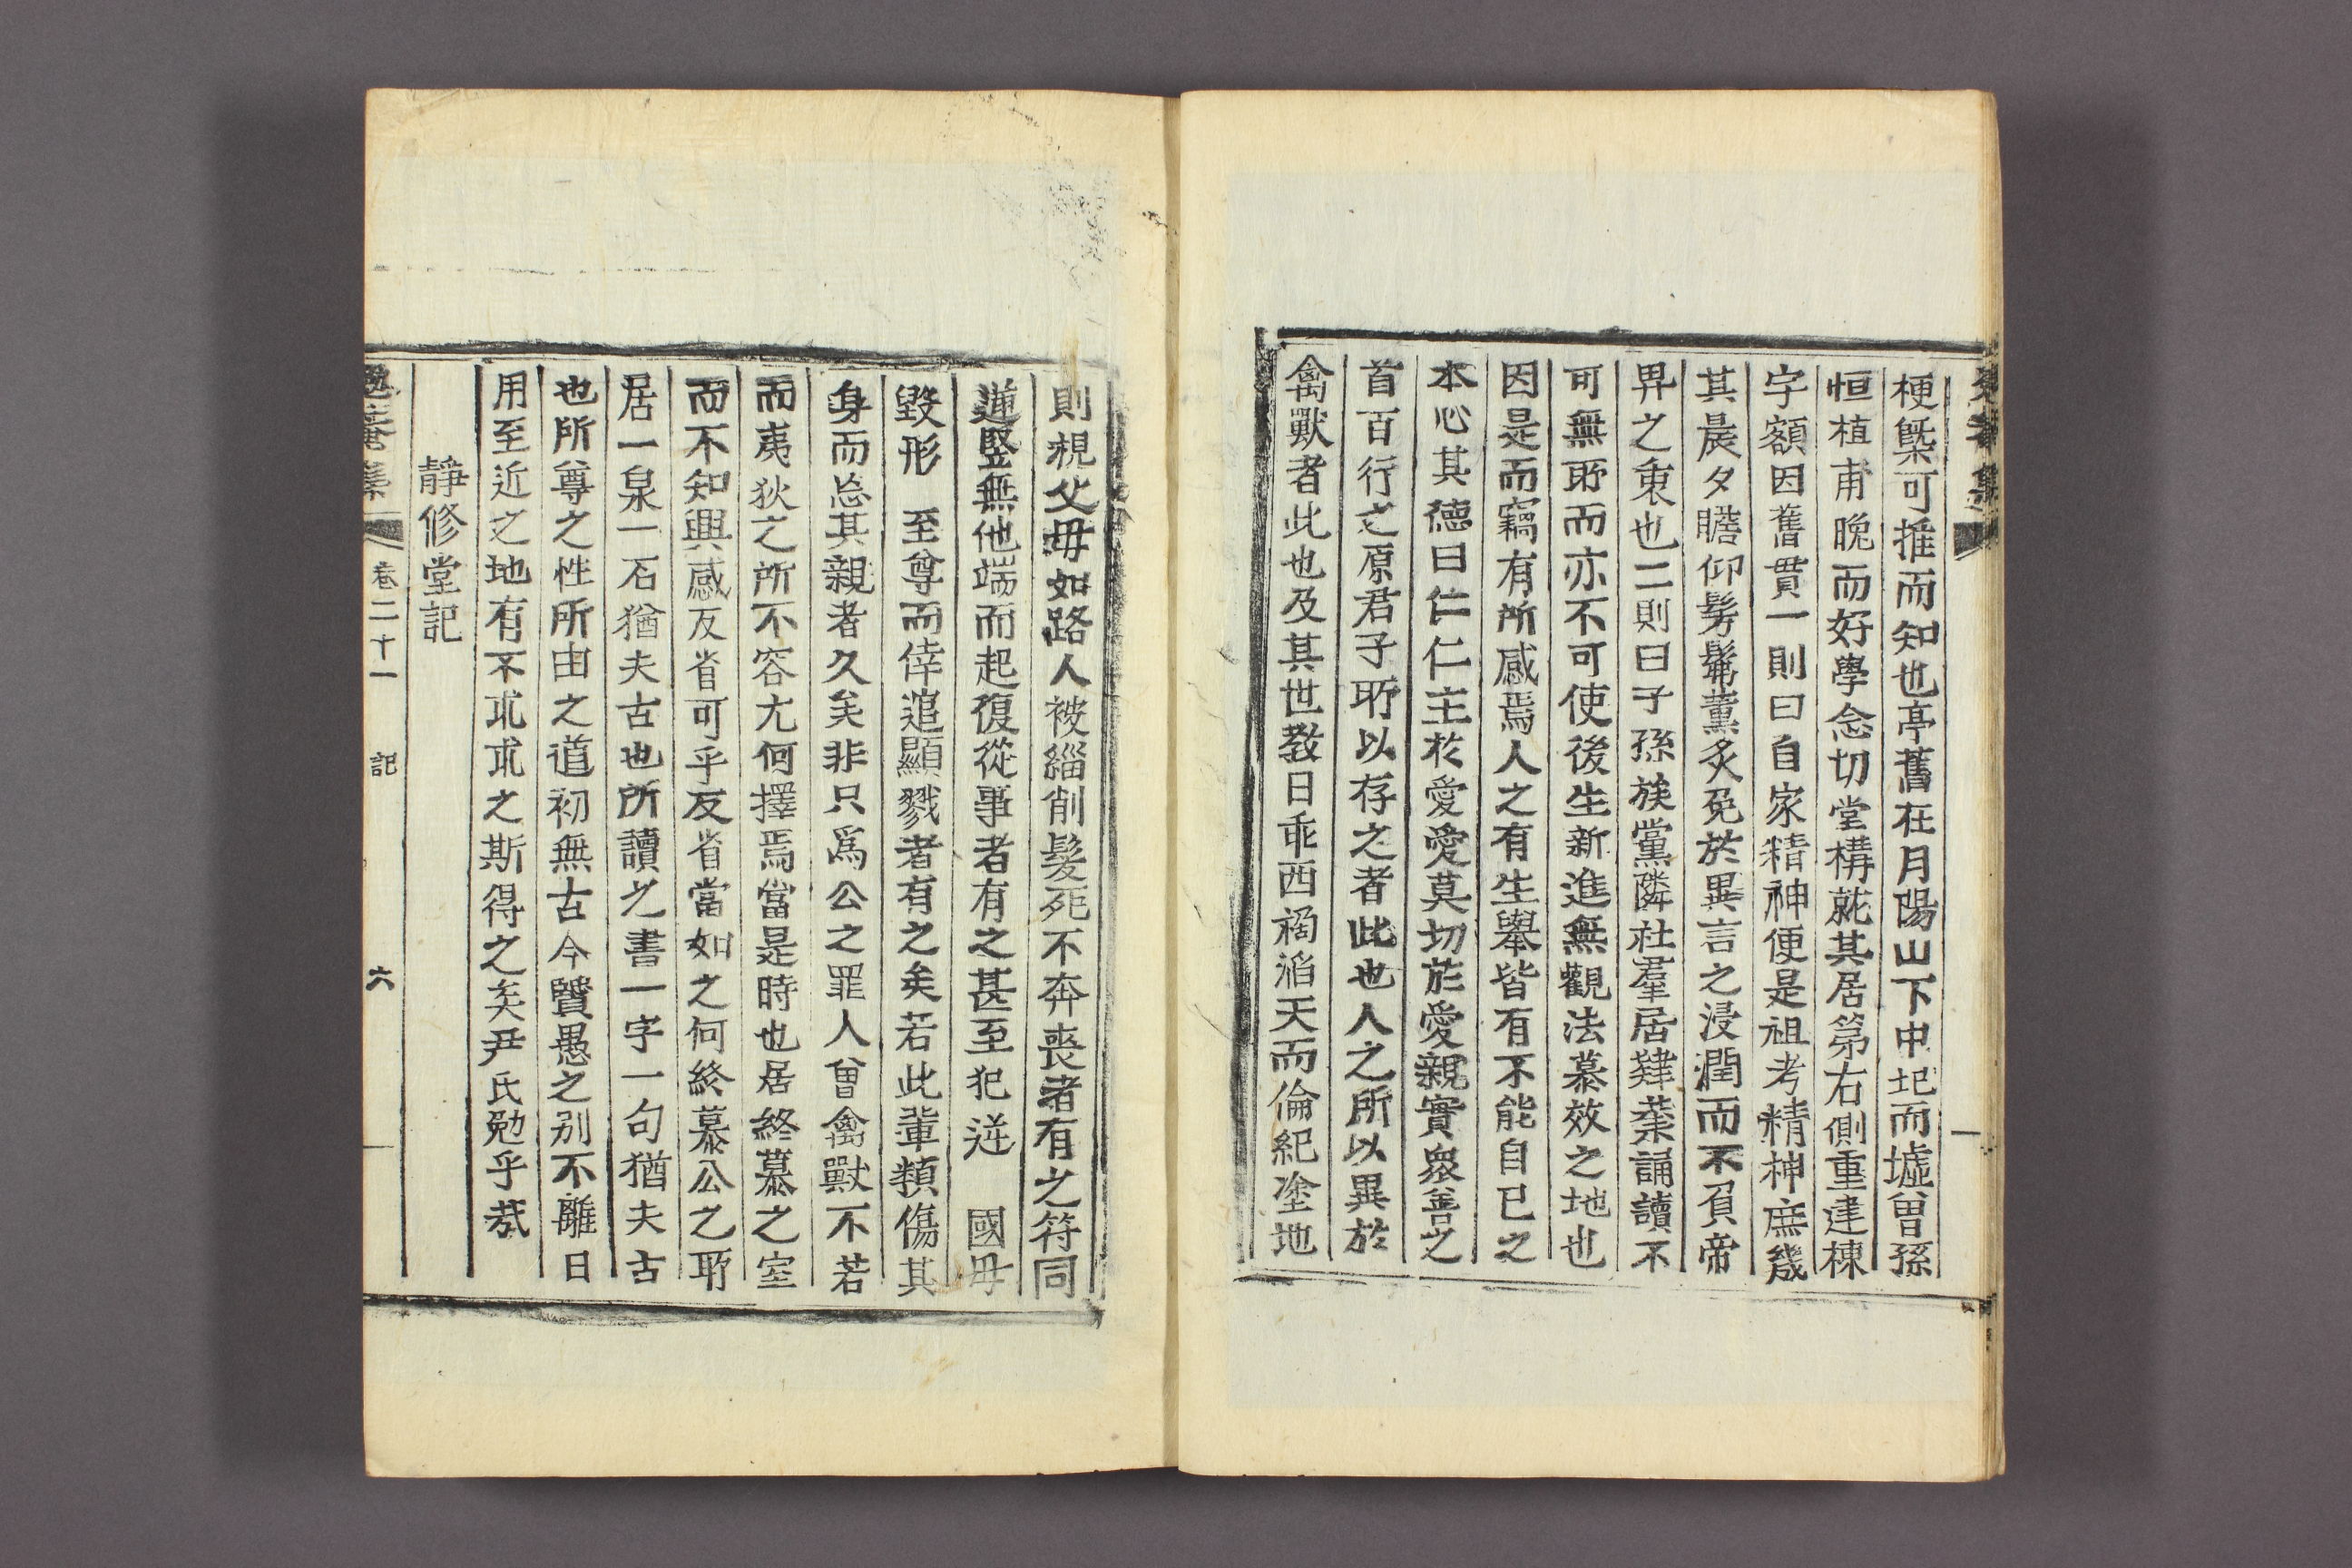 梗槩可推而知也亭舊在月陽山下中圮而墟曾孫
恒植甫晩而好學念切堂構就其居第右側重建棟
字額因舊貫一則曰自家精神便是祖考精神庶幾
其晨夕瞻仰髣髴薰炙免於異言之浸潤而不負帝
畀之衷也二則曰子孫族黨隣社羣居肄業誦讀不
可無所而亦不可使後生新進無觀法慕效之地也
因是而竊有所感焉人之有生舉皆有不能自已之
本心其德曰仁仁主於愛愛莫切於愛親實衆善之
首百行之原君子所以存之者此也人之所以異於
禽獸者此也及其世敎日乖西禍滔天而倫紀塗地
則視父母如路人被緇削髮死不奔喪者有之符同
逆竪無他端而起復從事者有之甚至犯逆 國母
毁形 至尊而倖逭顯戮者有之矣若此輩類傷其
身而忘其親者久矣非只爲公之罪人曾禽獸不若
而夷狄之所不容尤何擇焉當是時也居終慕之室
而不知興感反省可乎反省當如之何終慕公之所
居一泉一石猶夫古也所讀之書一字一句猶夫古
也所尊之性所由之道初無古今賢愚之別不離日
用至近之地有不求求之斯得之矣尹氏勉乎哉
靜修堂記
勉菴集 卷二十一 記 六